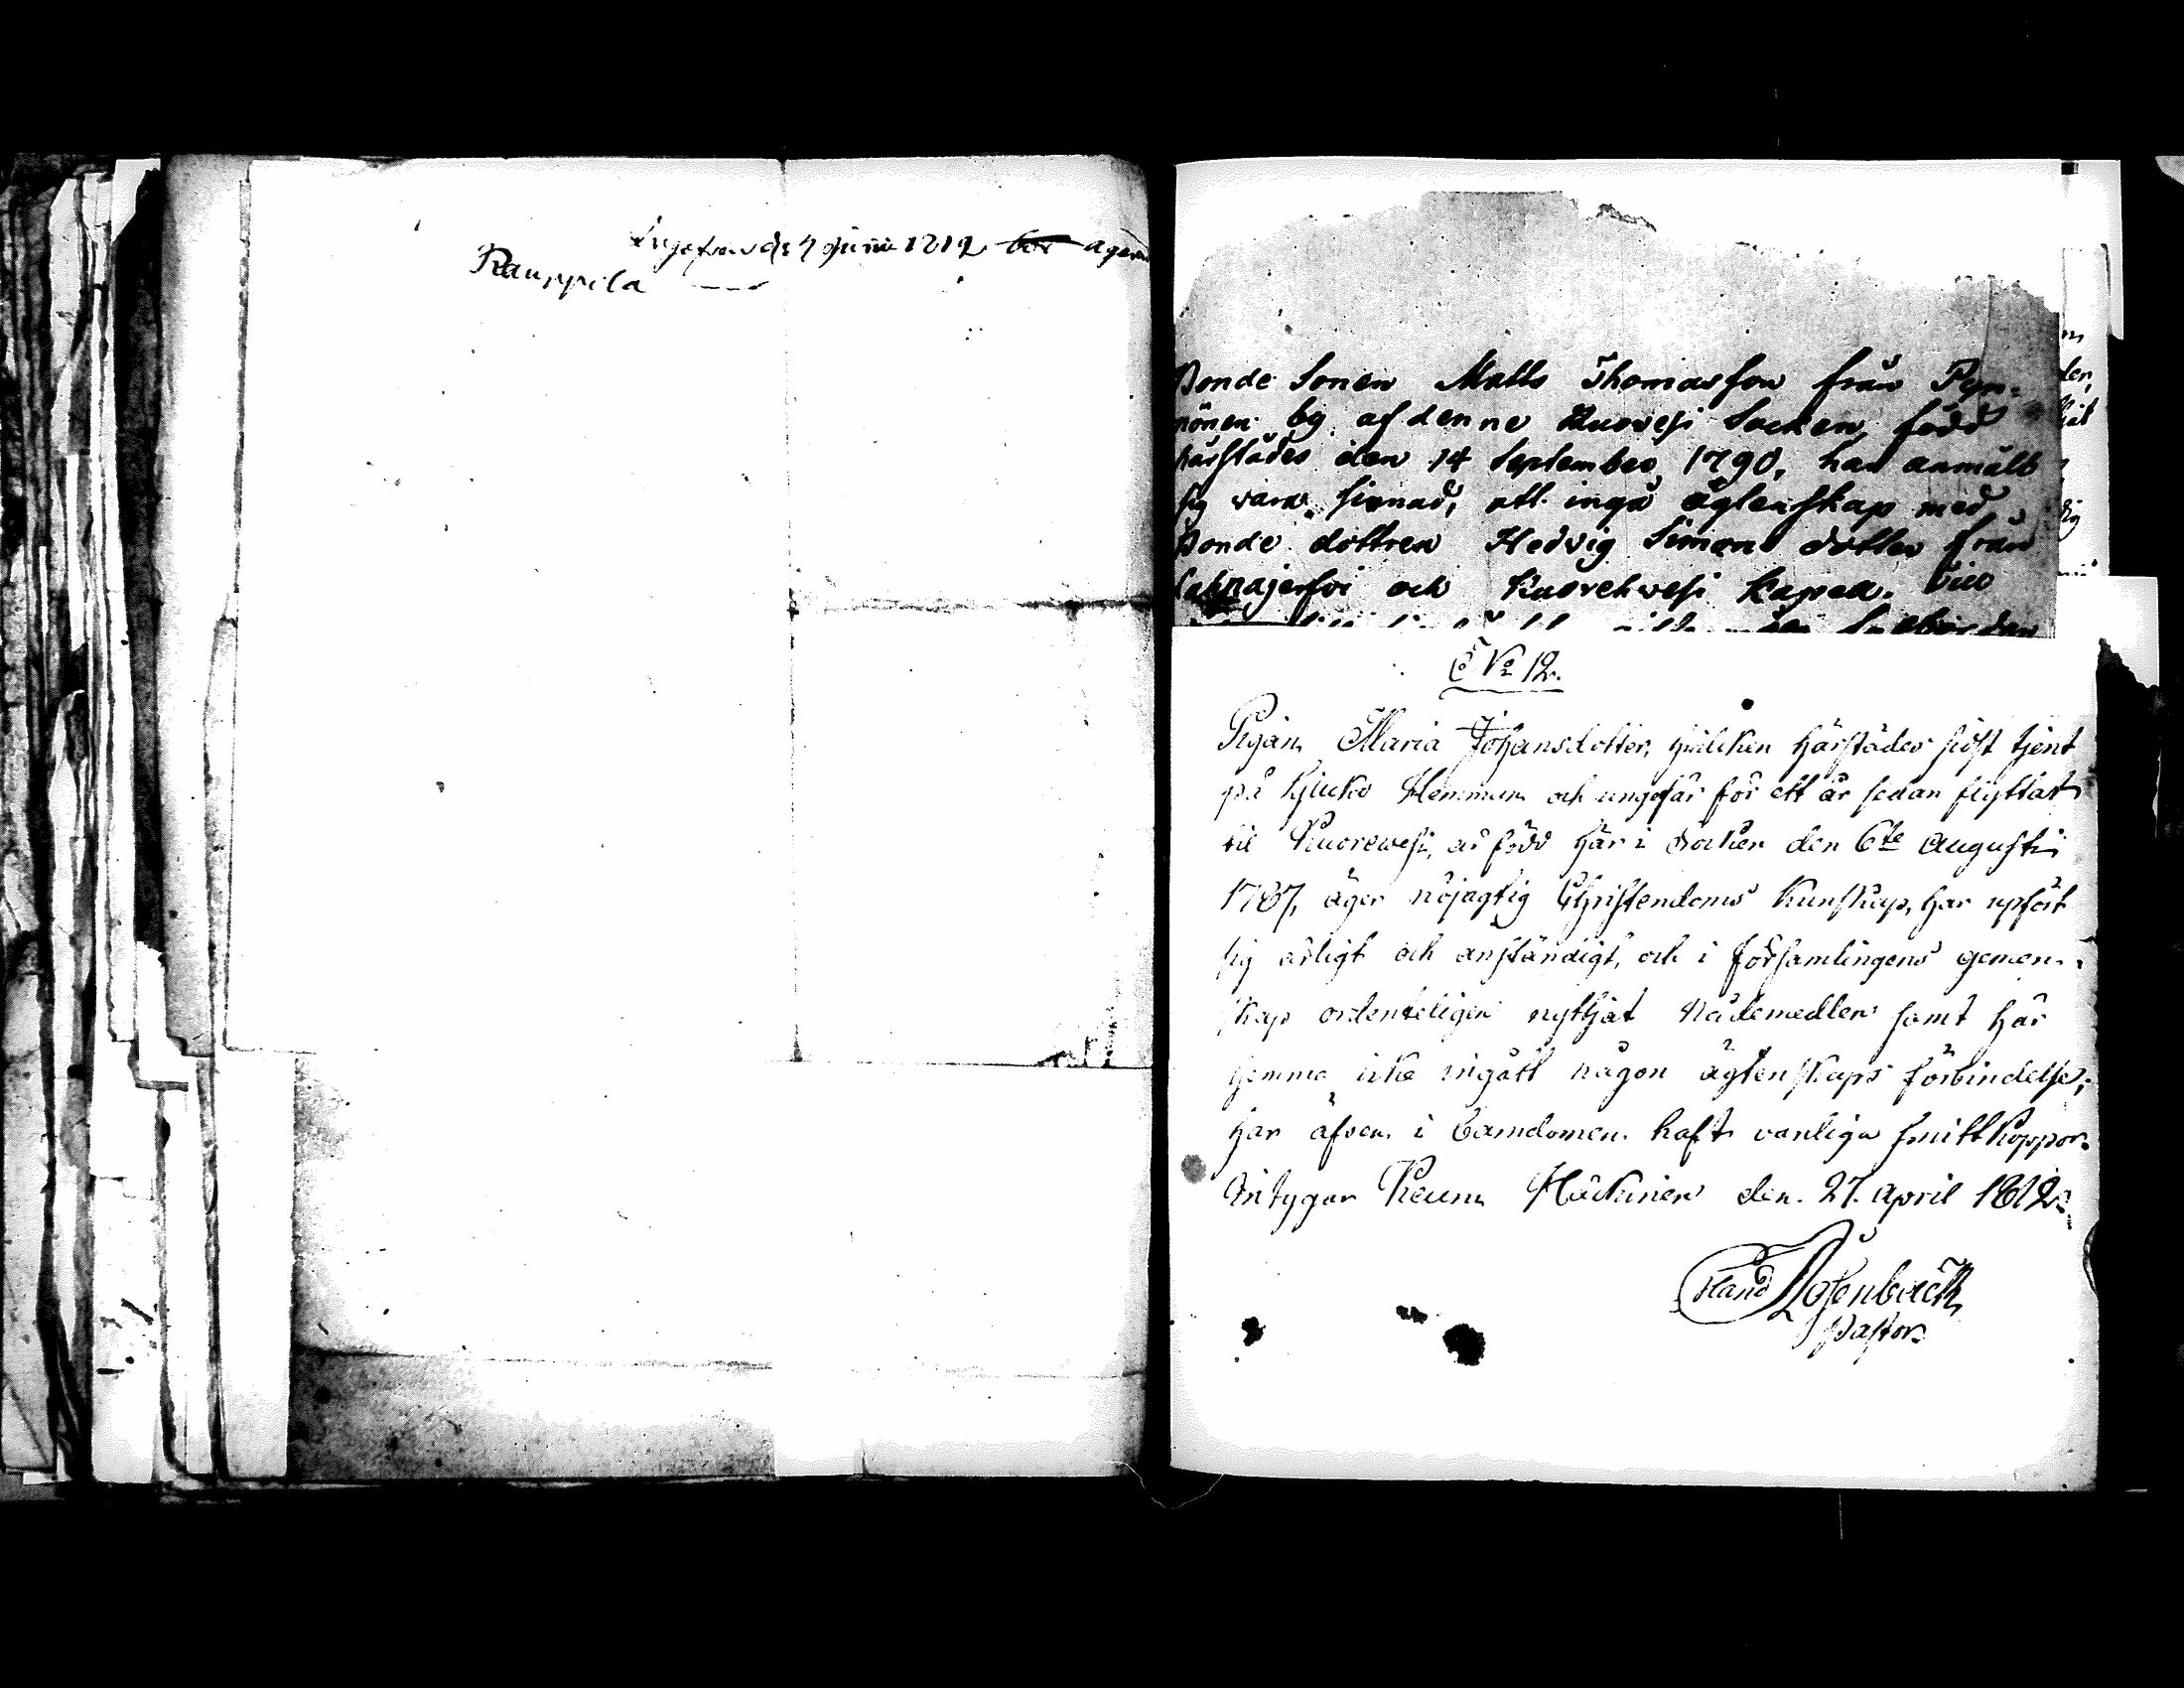 den 7 Junii 1812 bor
Rauppila
Bonde Sonen Matts Thomasson från Pyn-
nönen by af denne Ruovesi Socken, född
härstädes den 14 September 1790, har anmält
sig vara sinnad, att ingå ägtenskap med
Bonde dottren Hedvig Simons dotter från
Lahnajerfvi och Kuorehvesi Kapell. Till
N° 12.
Pigan Maria Johansdotter, hvilken härstädes sist tjent
på Hemman och ungefär för ett år sedan flyttat
til Kuorewesi, är född här i Socken den 6te Augusti
1787, äger nöjagtig Christendoms Kunskap, har upfört
sig ärligt och anständigt, och i församlingens gemen-
skap ordenteligen nyttjat Nådemedlen samt här
hemma icke ingått någon ägtenskaps förbindelse;
har äfven i barndomen haft vanliga smittkoppor.
Intygar Keuru den 27. April 1812.
Rosenbäck
Pastor